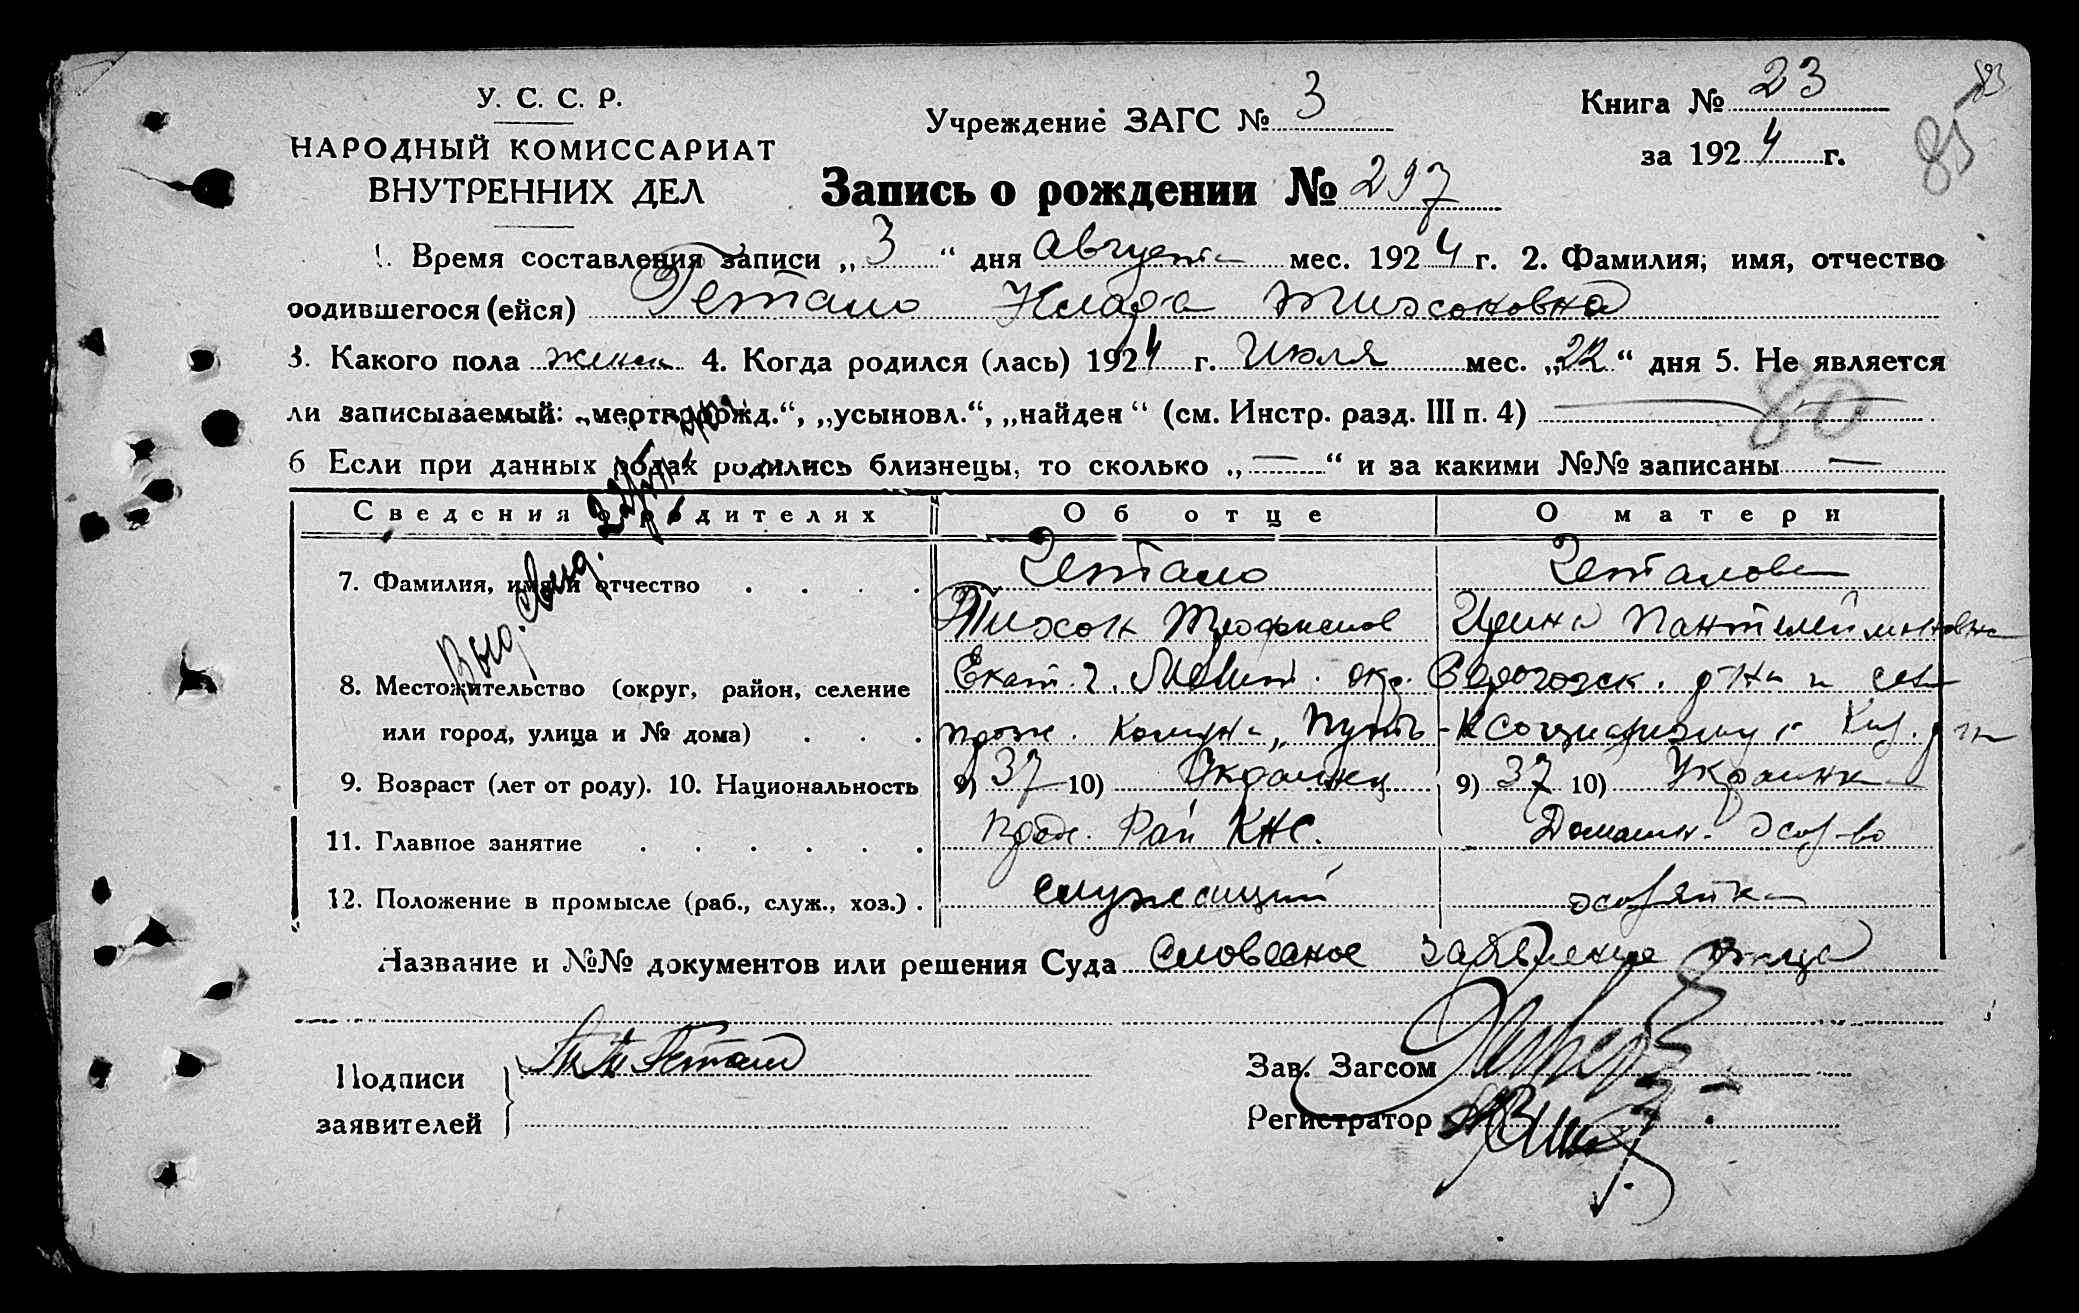 У. С. С. Р.
НАРОДНЫЙ КОМИССАРИАТ
ВНУТРЕННИХ ДЕЛ
Учреждение ЗАГС № 3
Книга № 23
83
за 1924 г.
85
Запись о рождении № 297
1. Время составления записи „3“ дня Августа мес. 1924 г. 2. Фамилия, имя, отчество
родившегося (ейся) Гетало Тихоновна
3. Какого пола женск 4. Когда родился (лась) 1924 г. Июля мес. „22“ дня 5. Не является
ли записываемый: „мертворожд.“, „усыновл.“, „найден“ (см. Инстр. разд. III п. 4) —
80
6 Если при данных родах родились близнецы, то сколько „—“ и за какими №№ записаны —
Сведения о родителях Об отце О матери
7. Фамилия, имя и отчество Гетало Геталова
Тихон Трофимов Ирина Пантелеймоновна
8. Местожительство (округ, район, селение Екат. г. Мелит. окр.
или город, улица и № дома) прож. Комуна „Путь к социализму“
9. Возраст (лет от роду). 10. Национальность 9) 37 10) Украинец 9) 37 10) Украинка
11. Главное занятие Рай КНС. Домашн. хоз-во
12. Положение в промысле (раб., служ., хоз.) служащий хозяйка
Выд.
Название и №№ документов или решения Суда Словесное заявление отца
Подписи
заявителей
Гетало
Зав. Загсом
Регистратор